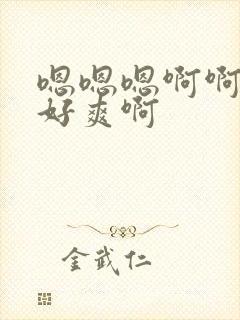 嗯嗯嗯啊啊
好爽啊
金武仁